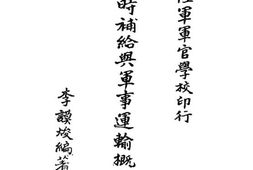 陸軍軍官學校印行
時補給與軍事運輸概
李讚焌編著